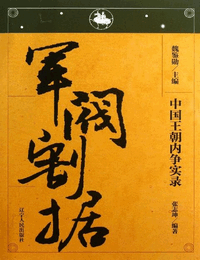 魏鉴勋/主编
中国王朝内争实录
张志坤/编著
军阀割据
辽宁人民出版社